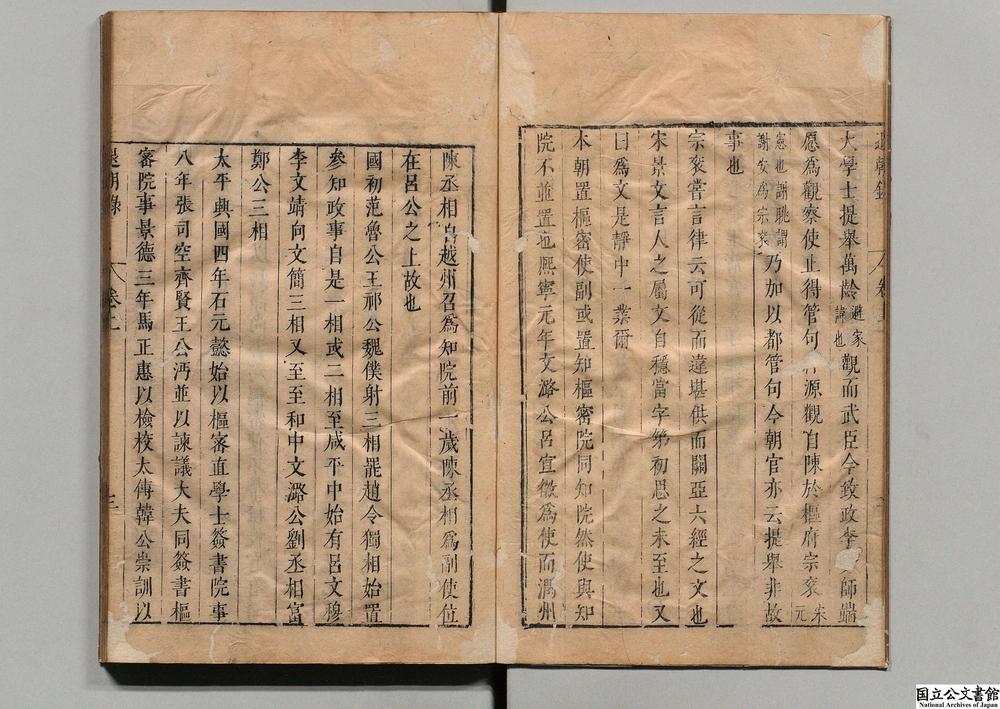 大學士提舉萬齡避家諱也觀而武臣今致政李 師端
愿為觀察使止得管句 源觀自陳於樞府宗衮宋元
憲也謝眺謝安為宗衮乃加以都管句今朝官亦云提舉非故
事也
宗衮嘗言律云可從而違堪供而闕亞六經之文也
宋景文言人之屬文自穩當字第初思之未至也又
曰為文是靜中一業爾
本朝置樞密使副或置知樞密院同知院然使與知
院不並置也熙寧元年文潞公呂宣徽為使而潤州
陳丞相自越州召為知院前一歲陳丞相為副使位
在呂公之上故也
國初范魯公王祁公魏僕射三相罷趙令獨相始置
參知政事自是一相或二相至咸平中始有呂文穆
李文靖向文簡三相又至至和中文潞公劉丞相富
鄭公三相
太平興國四年石元懿始以樞密直學士簽書院事
八年張司空齊賢王公沔並以諫議大夫同簽書樞
密院事景德三年馬正惠以檢校太傅韓公崇訓以
退朝錄 卷上 三
国立公文書館
National Archives of Japan